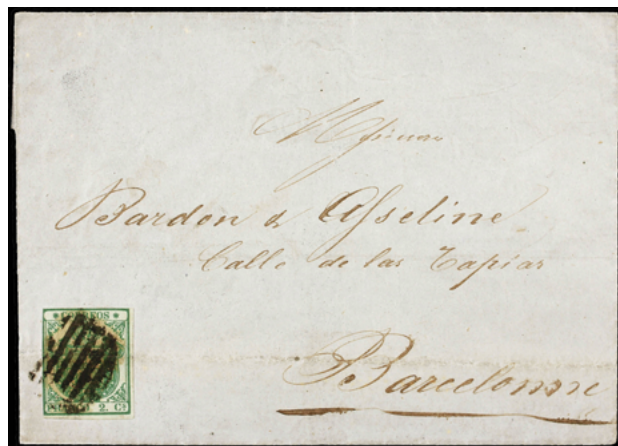 Messieurs
Bardon & Asseline
Calle de las Tapias
Barcelonne
CORREOS
2. Cs